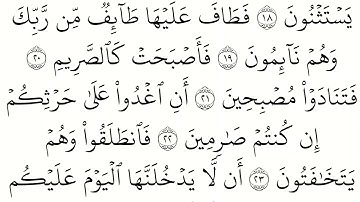 يَسْتَثْنُونَ ١٨ فَطَافَ عَلَيْهَا طَآئِفٌ مِّن رَّبِّكَ
وَهُمْ نَآئِمُونَ ١٩ فَأَصْبَحَتْ كَالصَّرِيمِ ٢٠
فَتَنَادَوْا مُصْبِحِينَ ٢١ أَنِ اغْدُوا عَلَىٰ حَرْثِكُمْ
إِن كُنتُمْ صَارِمِينَ ٢٢ فَانطَلَقُوا وَهُمْ
يَتَخَافَتُونَ ٢٣ أَن لَّا يَدْخُلَنَّهَا الْيَوْمَ عَلَيْكُم